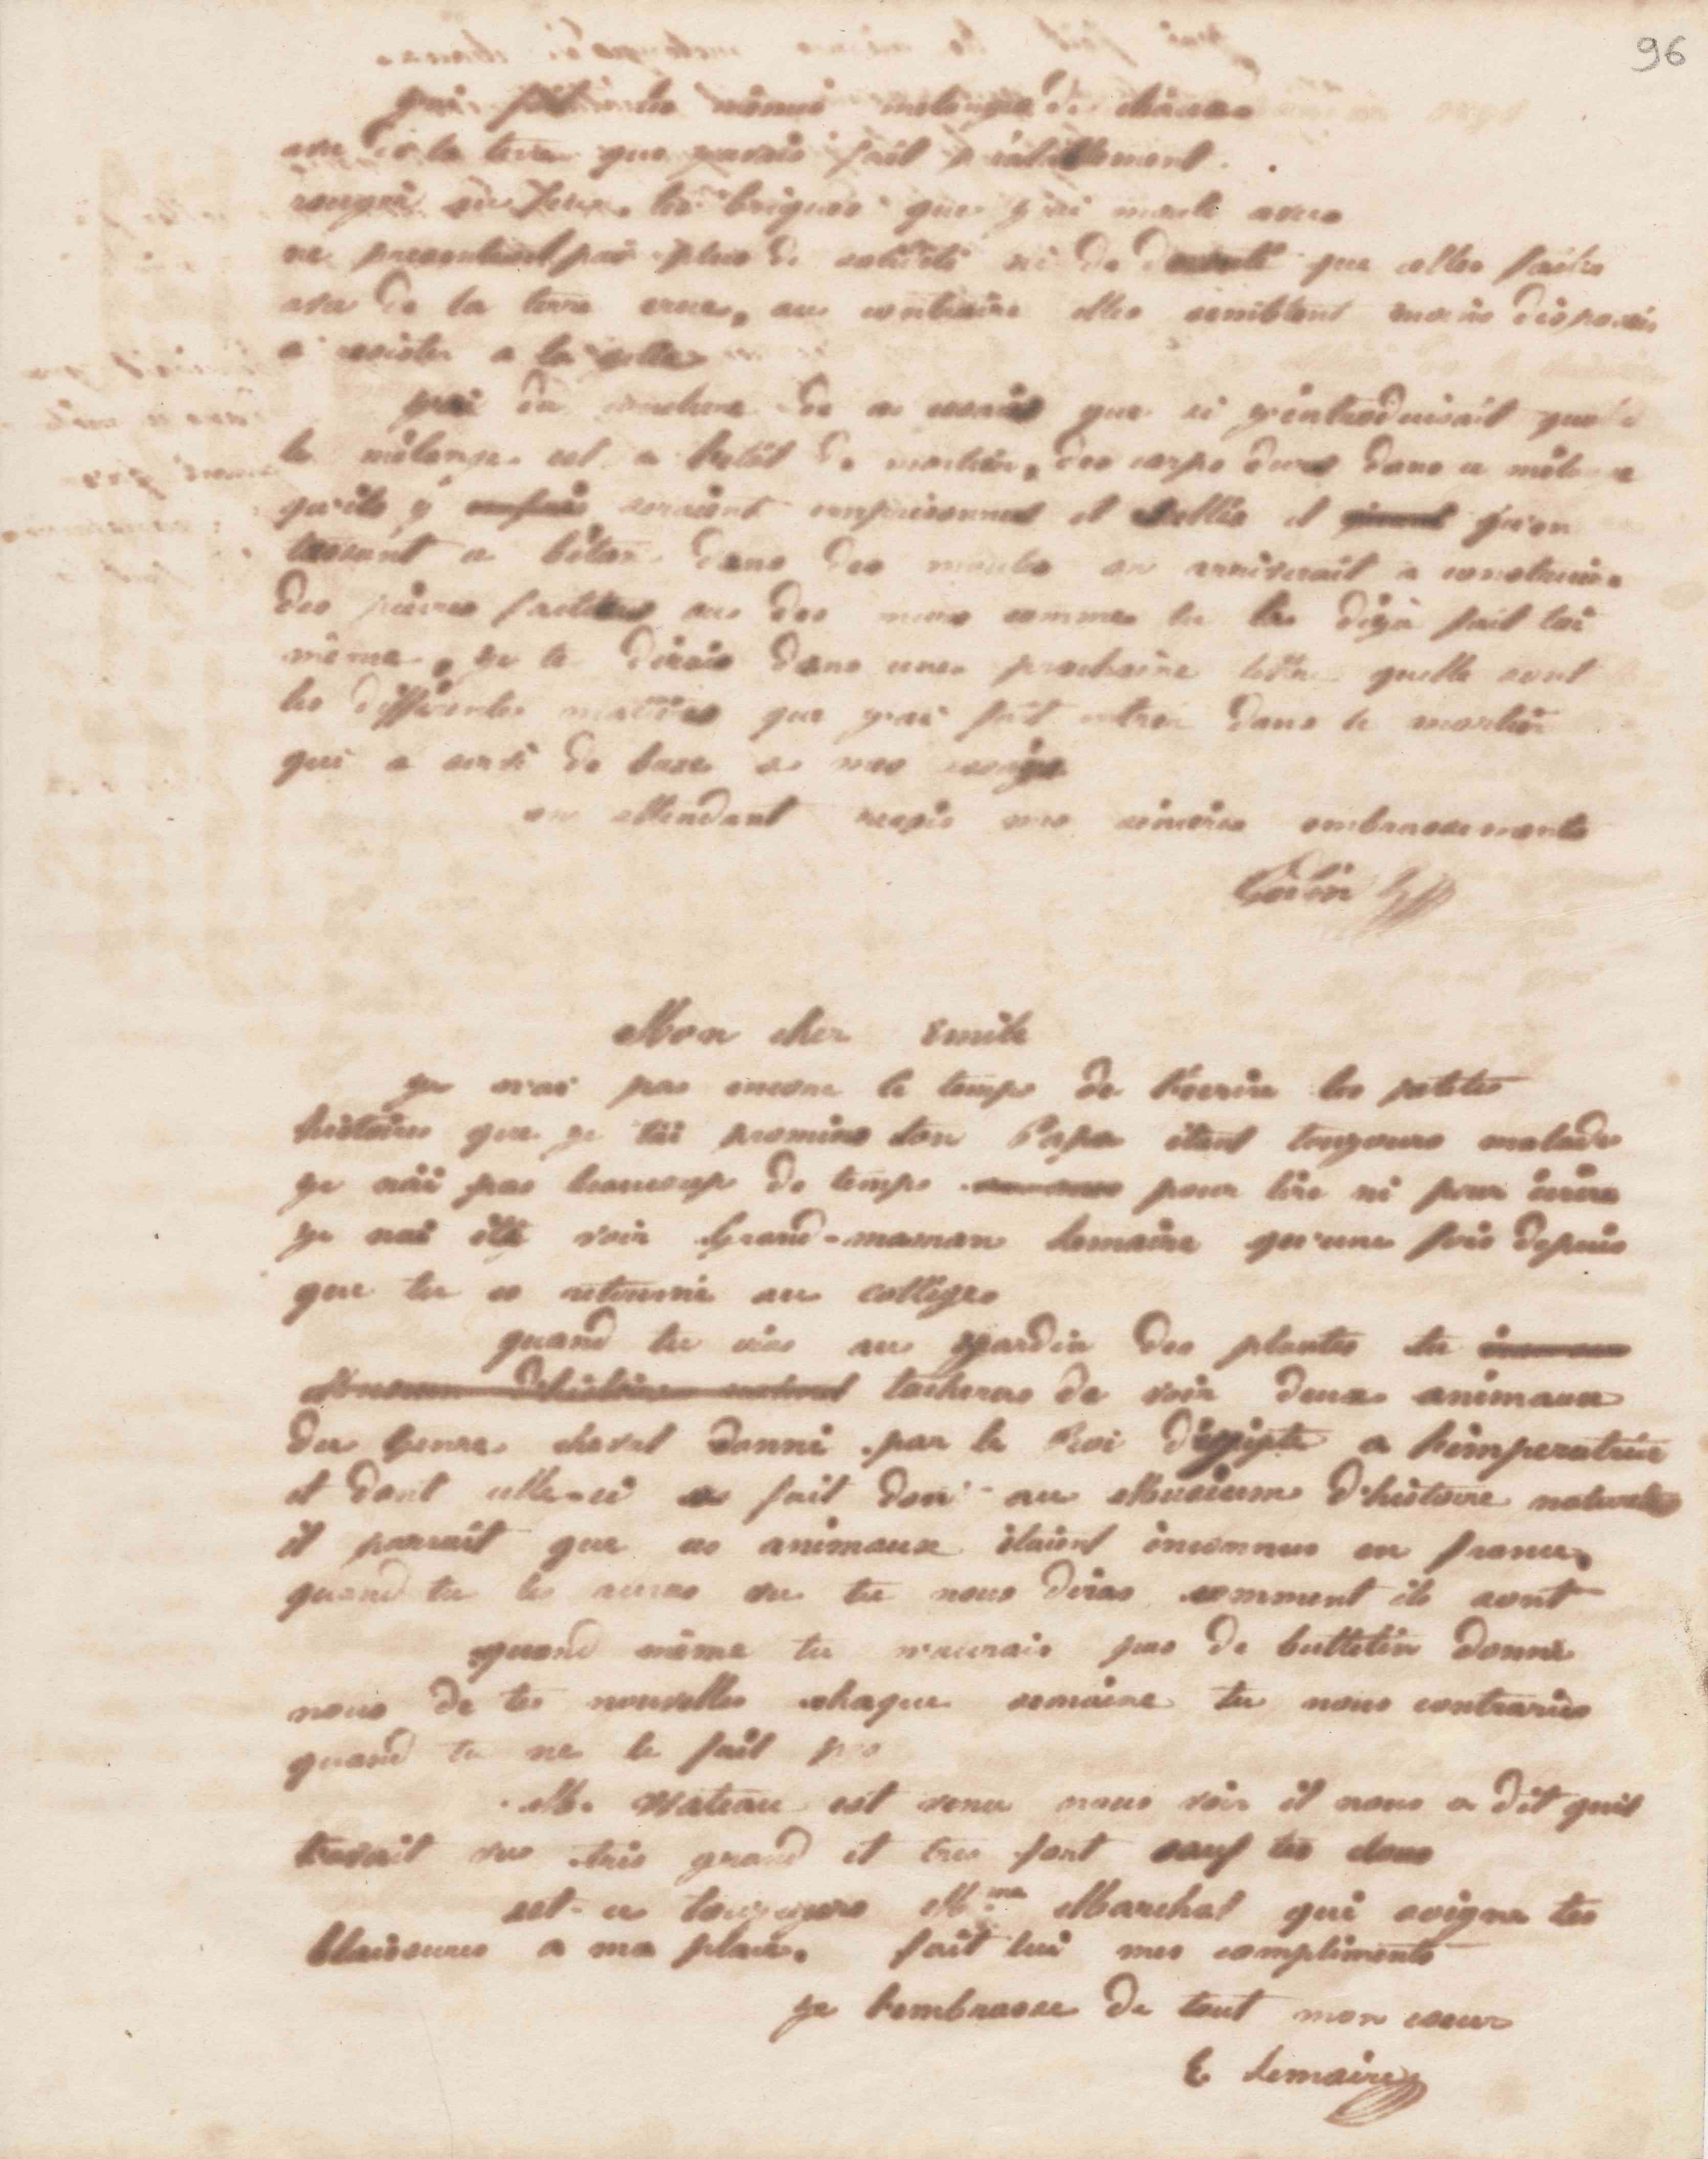 96
j'ai fait les mêmes mélanges de chaux
avec de la terre que j'avais fait préalablement
rougir au feu. les briques que j'ai moulé avec
ne presentent pas plus de solidité ni de dureté que celles faites
avec de la terre crue, au contraire elles semblent moins disposées
a resister a la gelée
j'ai du conclure de ces essais que si j'introduisait quand
le mélange est a l'état de mortier, des corps durs dans ce mélange
qu'ils y seraient emprisonnés et reliés et qu'on
tassant ce béton dans des moules on arriverait a construire
des pierres factices ou des murs comme tu l'as déjà fait toi
même, je te dirais dans une prochaine lettre quelle sont
les differentes matières que j'ai fait entrer dans le mortier
qui a servi de base a mes essais
en attendant reçois mes sincères embrassements
Godin
Mon cher Emile
je n'ai pas encore le temps de t'ecrire les petites
histoires que je t'ai promises ton Papa étant toujours malade
je n'ai pas beaucoup de temps pour lire ni pour écrire
je n'ai été voir Grand-maman Lemaire qu'une fois depuis
que tu es retourné au collége
quand tu iras au jardin des plantes tu
Museum d'histoire naturel tacheras de voir deux animaux
du genre cheval donné par le Roi d'egipte a l'imperatrice
et dont celle-ci a fait don au Museum d'histoire naturel
il parrait que ces animaux étaient inconnus en france,
quand tu les auras vu tu nous diras comment ils sont
quand même tu n'aurais pas de bulletin donne
nous de tes nouvelles chaque semaine tu nous contraries
quand tu ne le fait pas
M. Wateau est venu nous voir il nous a dit qu'il
t'avait vu très grand et tres fort sauf tes clous
est-ce toujours Mme Marchal qui soigne tes
blaissures a ma place. fait lui mes compliments
je t'embrasse de tout mon coeur
E Lemaire